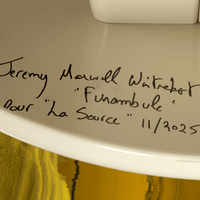 Jeremy Maxwell Wintrebert
"Funambule"
pour "La Source" 11/2025